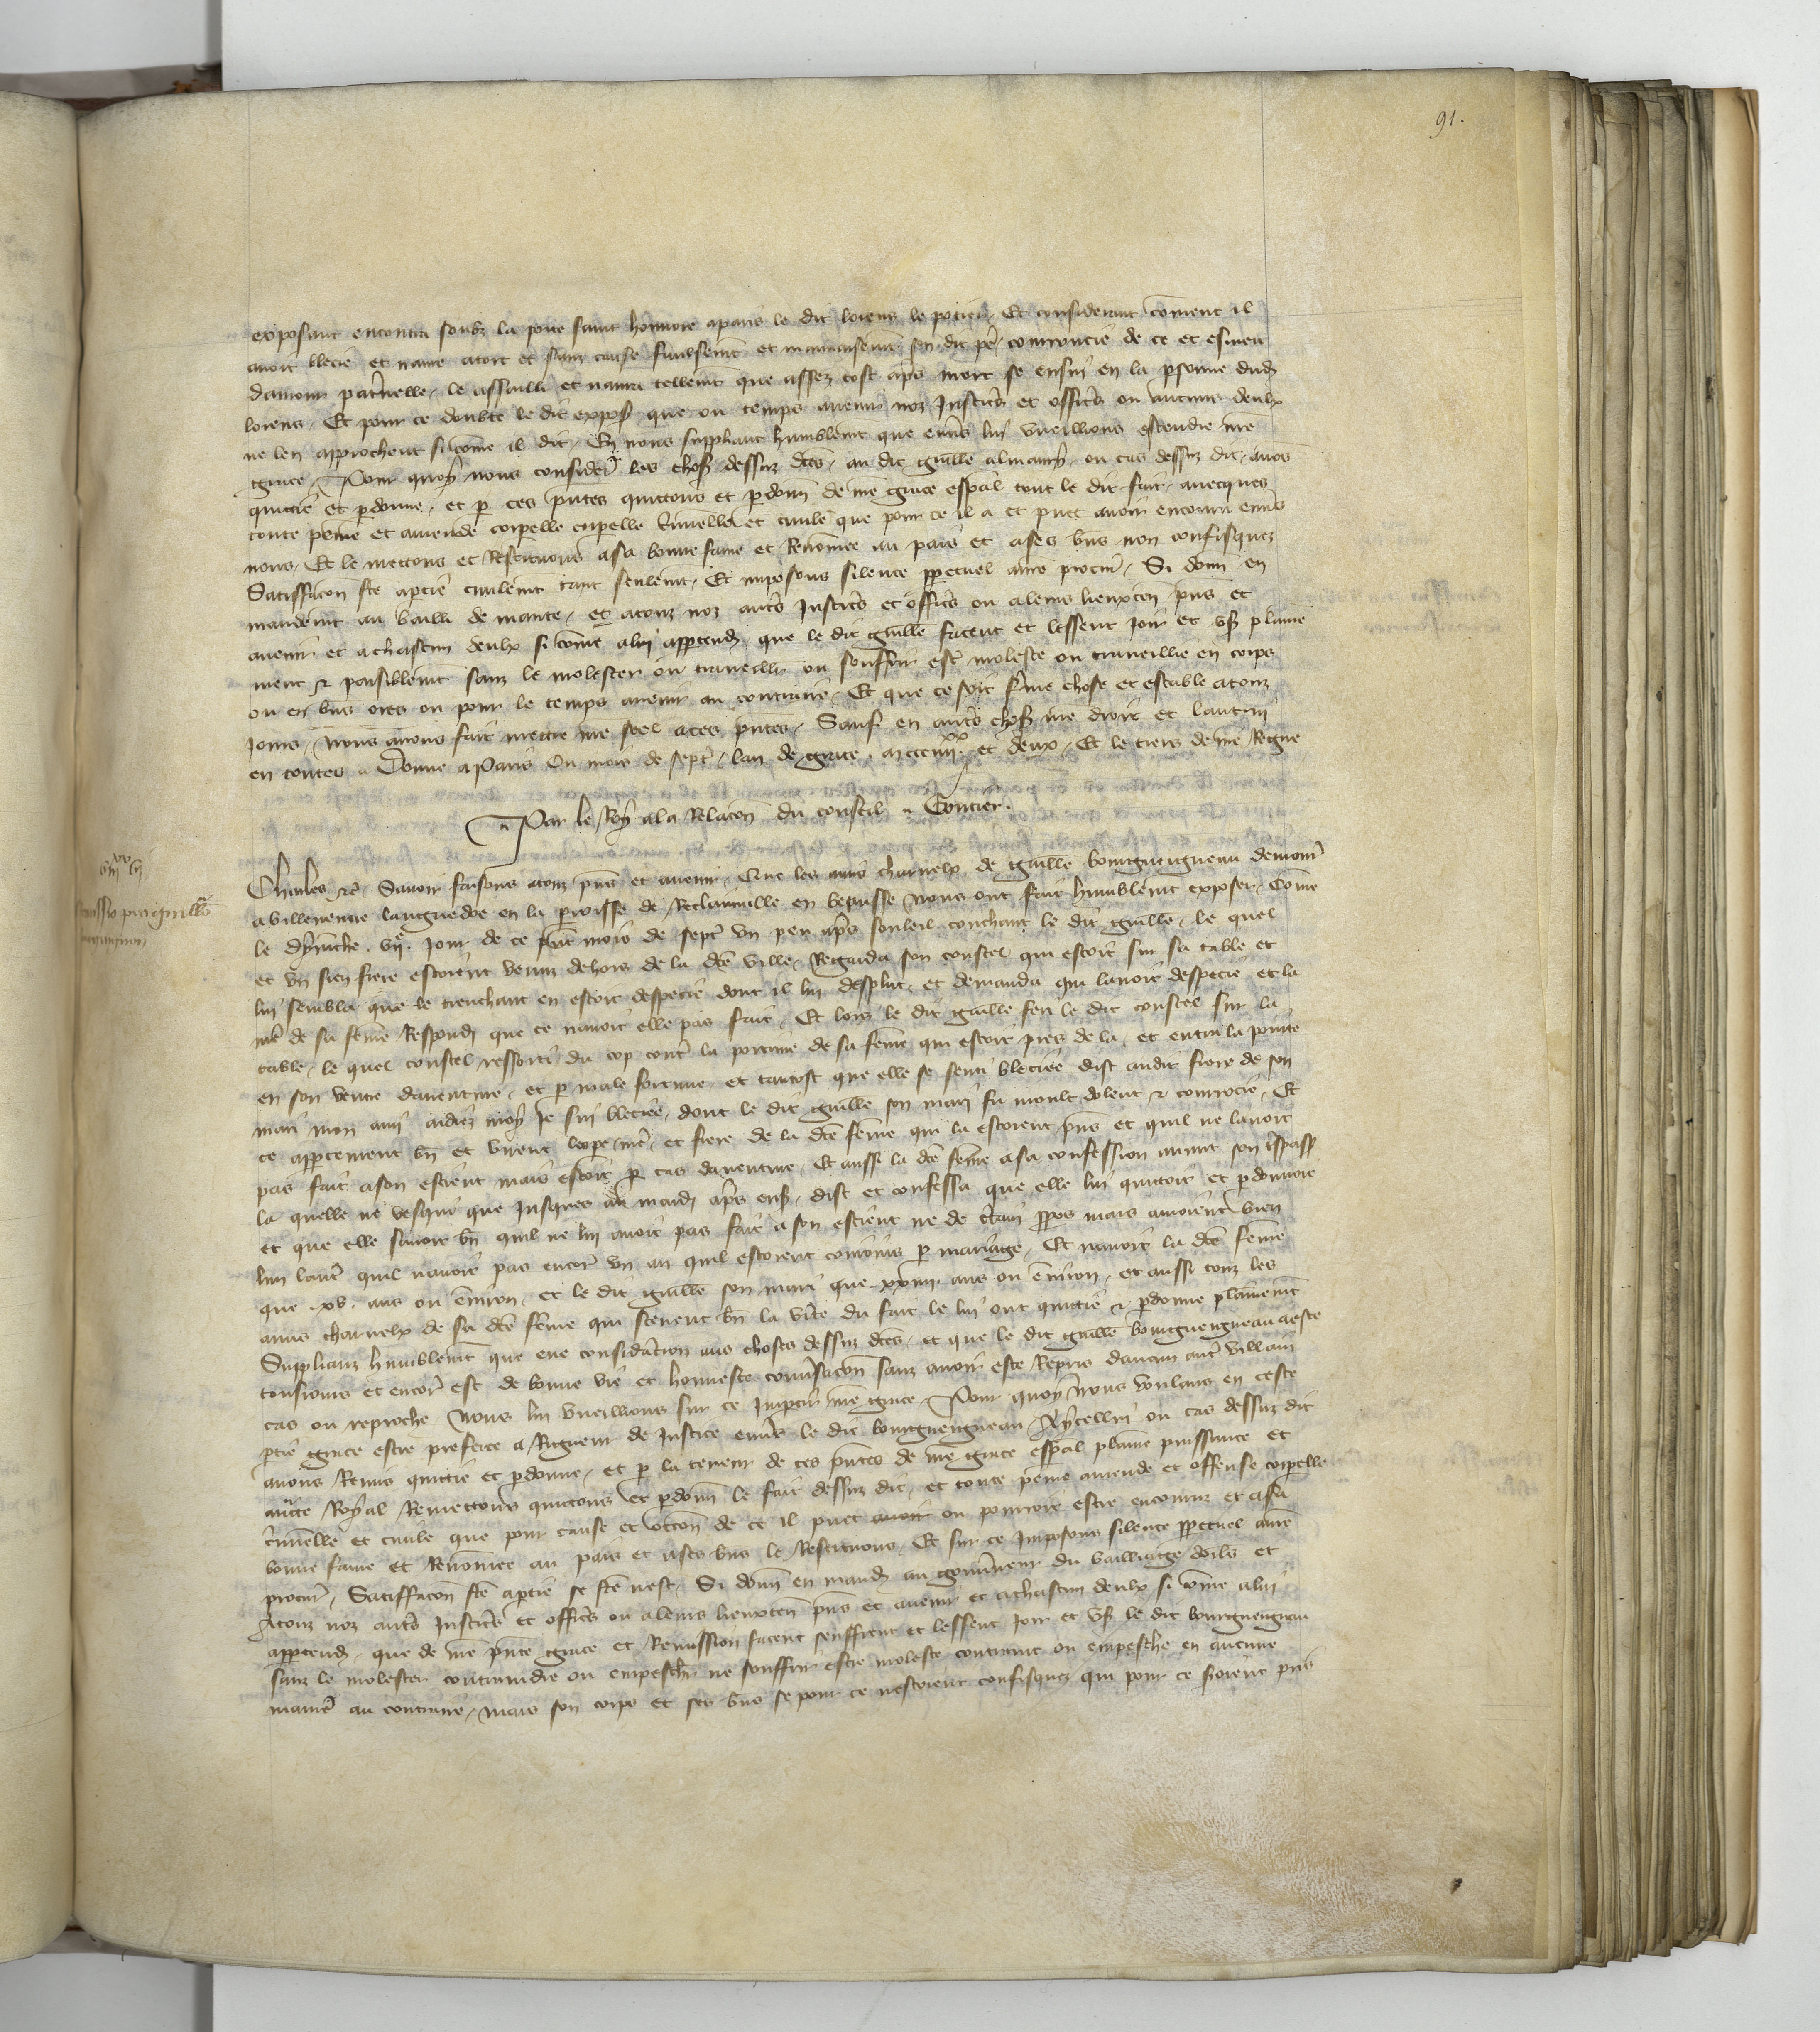 91.
exposant encontra soubz la porte saint honnore aparis le dit lorens le potier. Et considerant coment il
avoit blecie et navre atort et sanz cause faulsemt et mauvaisemt son dit pere courroucie de ce et esmeu
damour paternelle. le assailli et navra tellemt que assez tost apres mort se ensui en la psonne dud
lorens. Et pour ce doubte le dit expos que ou temps avenir noz Justic̃s et offic̃s ou aucuns deulx
ne len approchent si cõme il dit. En nous suppliant humblemt que envs lui vueillions estendre nrẽ
grace. Pour quoy nous considere les chos dessuz dc̃es. au dit guillẽ almaury. ou cas dessuz dit. avõs
quictie et pdonne. et p ces pñtes quictons et pdonñ de nrẽ grace espãl tout le dit fait. avecques
toute peine et amende corpelle corpelle criminelle et civile que pour ce il a et puet avoir encouru envs
nous. Et le mectons et Restituons asa bonne fame et Renõmee au pais et ases bñs non confisquez
Satisfacõn fte aptie civilemt tant seulemt. Et imposons silence ppetuel anrẽ procur̃. Si donñ en
mandemt au bailli de mante. et atouz noz autrs Justic̃s et offic̃s ou aleurs lieuxten̄ pñs et
avenir et achascun deulx si cõme alui apptend. que le dit guillẽ facent et lessent Joir et us plaine
ment et paisiblemt sanz le molester ou traveillr ou souffrir est̃ moleste ou traveillie en corps
ou en biens ores ou pour le temps avenir au contraire. Et que ce soit ferme chose et estable atouz
jours. Nous avons fait mectre nrẽ seel aces pñtes. Sauf en autrs chos nrẽ droit et lautrui
en toutes. Donne aParis Ou mois de sept̃. lan de grace. mccciiiixx. et deux. Et le tiers de nrẽ Regne
Par le Roy ala Relacõn du conseil. Contier.
iiiixx iiii
Remissio pro guillõ
Charles etc̃. Savoir faisons atouz pñs et avenir. Que les amis charnelx de guillẽ bourguengneau demour̃
a villeneuve languedoe en la parroisse de Reclainville en beausse Nous ont fait humblemt exposer. Cõme
le dymẽche. viie. jour de ce pñt mois de sept̃ un peu aps souleil couchant le dit guillẽ. le quel
et un sien frere estoient venuz dehors de la dc̃e ville. Regarda son coustel qui estoit sur sa table et
lui sembla que le trenchant en estoit despecie dont il lui desplut. et demanda qui lavoit despecie et la
mer̃ de sa fẽme Respond que ce navoit elle pas fait. Et lors le dit guillẽ feri le dit coustel sur la
table. le quel coustel ressorti du cop contr̃ la poitrine de sa fẽme qui estoit pres de la. et entra la pointe
en son ventre daventure. et p male fortune. et tantost que elle se senti bleciee dist audit frere de son
mari mon ami aidiez moy Je sui bleciee. dont le dit guillẽ son mari fu moult dolent et courrocie. Et
ce appercurent bñ et virent le pere. mer̃. et frere de la dc̃e fẽme qui la estoient pñs et quil ne lavoit
pas fait ason escient mais estoit p cas daventure. Et aussi la dc̃e fẽme asa confession avant son trespass
la quelle ne vesqui que Jusques au mardi aps ens. dist et confessa que elle lui quictoit et pdonnoit
et que elle savoit bñ quil ne lui avoit pas fait a son escient ne de certain ppos mais amoient bien
lun lautr̃ quil navoit pas encor̃ un an quil estoient conioins p mariage. Et navoit la dc̃e fẽme
que xv. ans ou environ. et le dit guillẽ son mari que xxiiii ans ou environ. et aussi touz les
amis charnelx de sa dc̃e fẽme qui scevent bñ la vite du fait le lui ont quictie et pdonne plainemt
Supplianz humblemt que eue considacion aus choses dessuz dc̃es. et que le dit guillẽ bourguengneau aeste
tousiours et encor̃ est de bonne vie et honneste convsacõn sanz avoir este Repris daucun autr̃ villain
cas ou reproche Nous lui vueillions sur ce Impartir nrẽ grace. Pour quoy Nous voulans en ceste
ptie grace estre preferee a Rigueur de Justice envs le dit bourguengneau Ycellui ou cas dessuz dit
avons Remis quictie et pdonne. et p la teneur de ces pñtes de nrẽ grace espãl plaine puissance et
auc̃te Royal Remectons quictons et pdonñ le fait dessuz dit. et toute peine amende et offense corpelle
criminelle et civile que pour cause et occõn de ce il puet avoir ou pourroit estre encouruz et asa
bonne fame et Renõmee au pais et ases bñs le Restituons. Et sur ce Imposons silence ppetuel anrẽ
procur̃. Satisfacõn fte aptie se fte nest. Si donñ en mand au gouvneur du bailliaige dorlñs et
atouz noz autrs Justic̃s et offic̃s ou aleurs lieuxten̄ pñs et avenir et achascun deulx si cõme alui
apptend. que de nrẽ pñte grace et Remission facent seuffrent et lessent Joir et us le dit bourguengneau
sanz le molester contraindre ou empescher ne souffrir estre moleste contraint ou empesche en aucune
manier̃ au contraire. mais son corps et ses biens se pour ce nestoient confisquez qui pour ce seroient pris